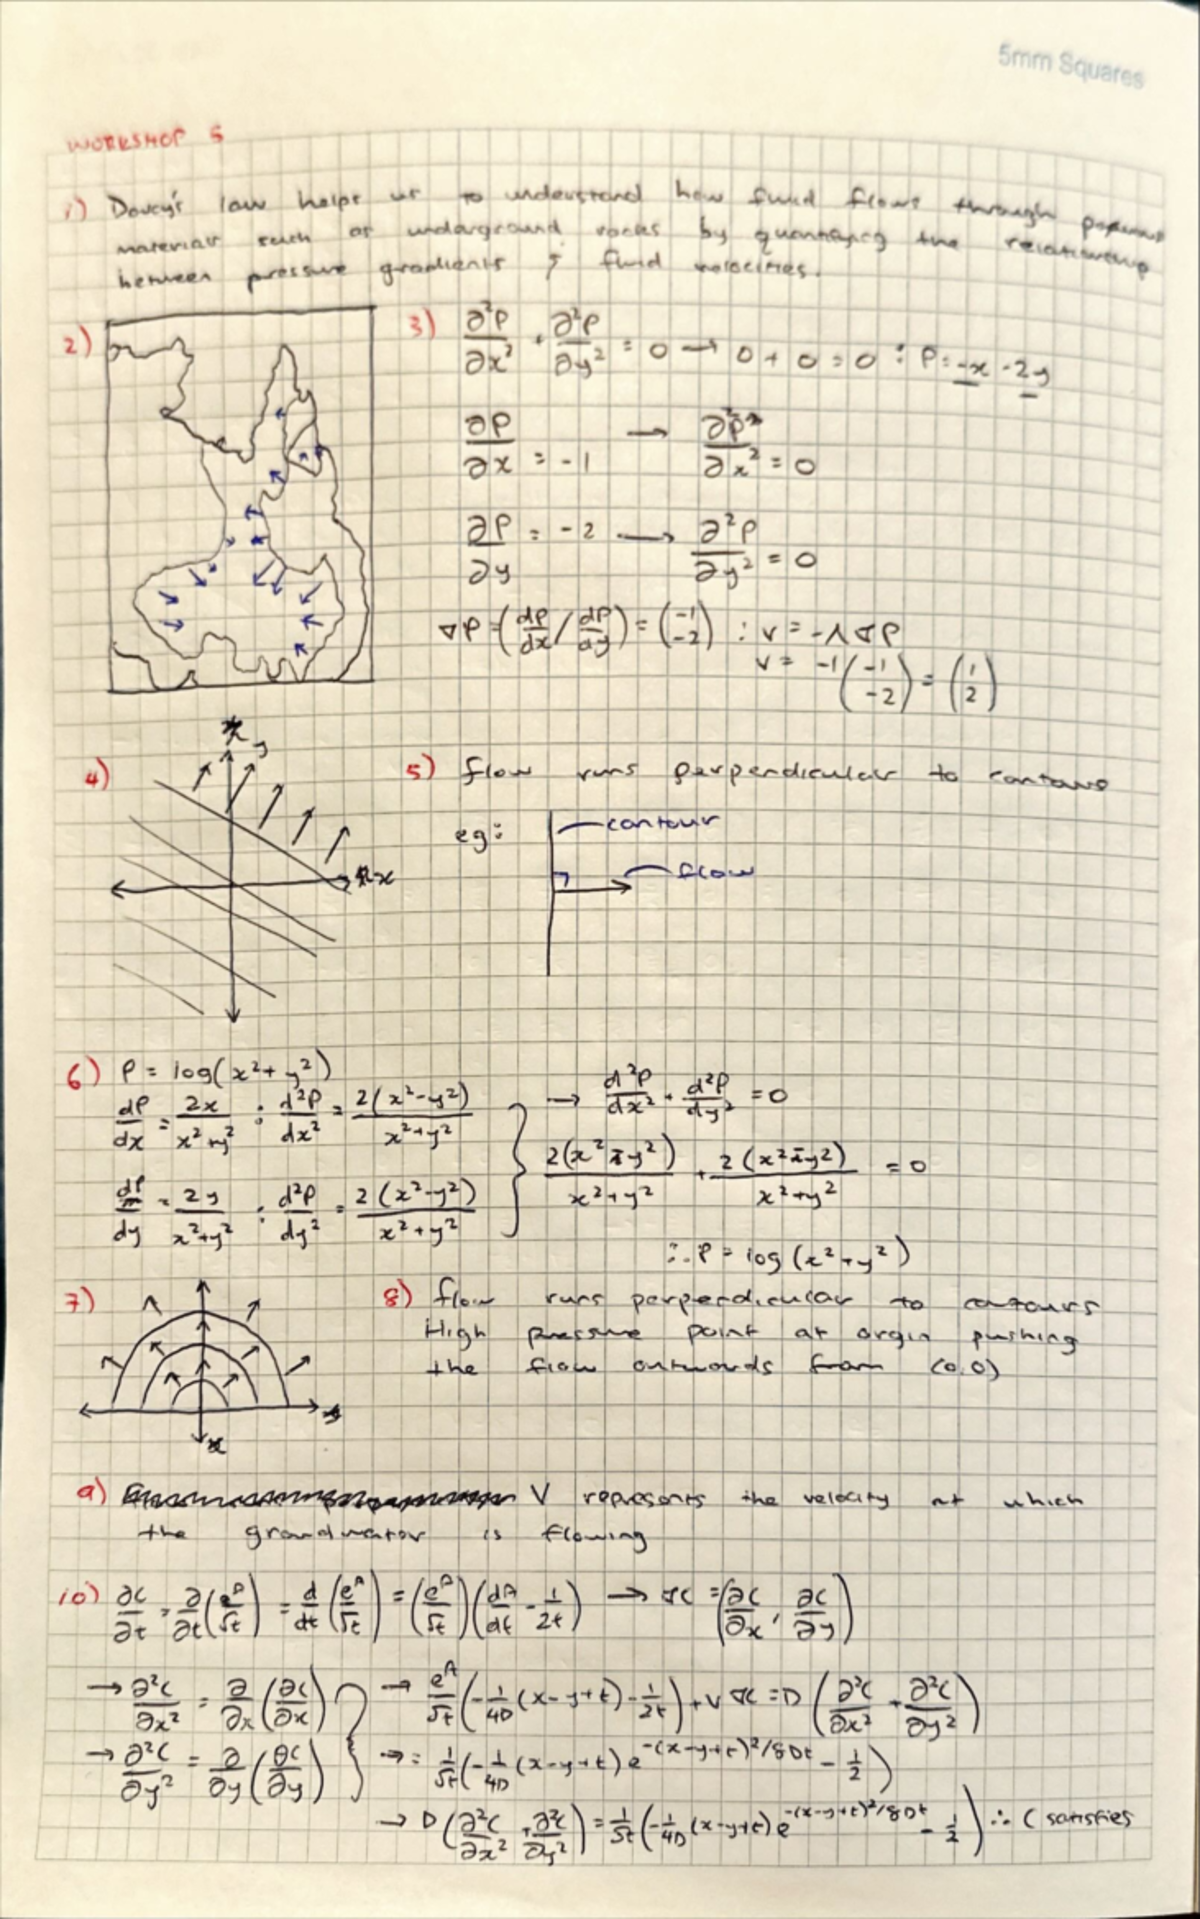 5mm Squares
WORKSHOP 5
1) Darcy's law helps us to understand how fluid flows through porous
materials such as underground rocks by quantifying the relationship
between pressure gradients & fluid velocities.
2)
3) ∂²P/∂x² + ∂²P/∂y² = 0 → 0 + 0 = 0 : P = -x - 2y
∂P/∂x = -1 → ∂²P/∂x² = 0
∂P/∂y = -2 → ∂²P/∂y² = 0
∇P = (dP/dx / dP/dy) = (-1 -2) : v = -λ∇P
v = -1(-1 -2) = (1 2)
4) y
x
5) flow runs perpendicular to contours
eg:
contour
flow
6) P = log(x² + y²)
dP/dx = 2x/x²+y² : d²P/dx² = 2(x²-y²)/x²+y²
dP/dy = 2y/x²+y² : d²P/dy² = 2(x²-y²)/x²+y²
→ d²P/dx² + d²P/dy² = 0
2(x² y²)/x²+y² + 2(x² y²)/x²+y² = 0
∴ P = log(x²+y²)
7)
x
8) flow runs perpendicular to contours
High pressure point at orgin pushing
the flow outwards from (0,0)
9) V represents the velocity at which
the groundwater is flowing
10) ∂C/∂t = ∂/∂t(e^A/√t) = d/dt(e^A/√t) = (e^A/√t)(dA/dt - 1/2t) → ∇C = (∂C/∂x, ∂C/∂y)
→ ∂²C/∂x² = ∂/∂x(∂C/∂x)
→ ∂²C/∂y² = ∂/∂y(∂C/∂y)
→ e^A/√t(-1/4D(x-y+t) - 1/2t) + V∇C = D(∂²C/∂x² + ∂²C/∂y²)
→ = 1/√t(-1/4D(x-y+t)e^-(x-y+t)²/8Dt - 1/2)
→ D(∂²C/∂x² + ∂²C/∂y²) = 1/√t(-1/4D(x-y+t)e^-(x-y+t)²/8Dt - 1/2) ∴ C satisfies